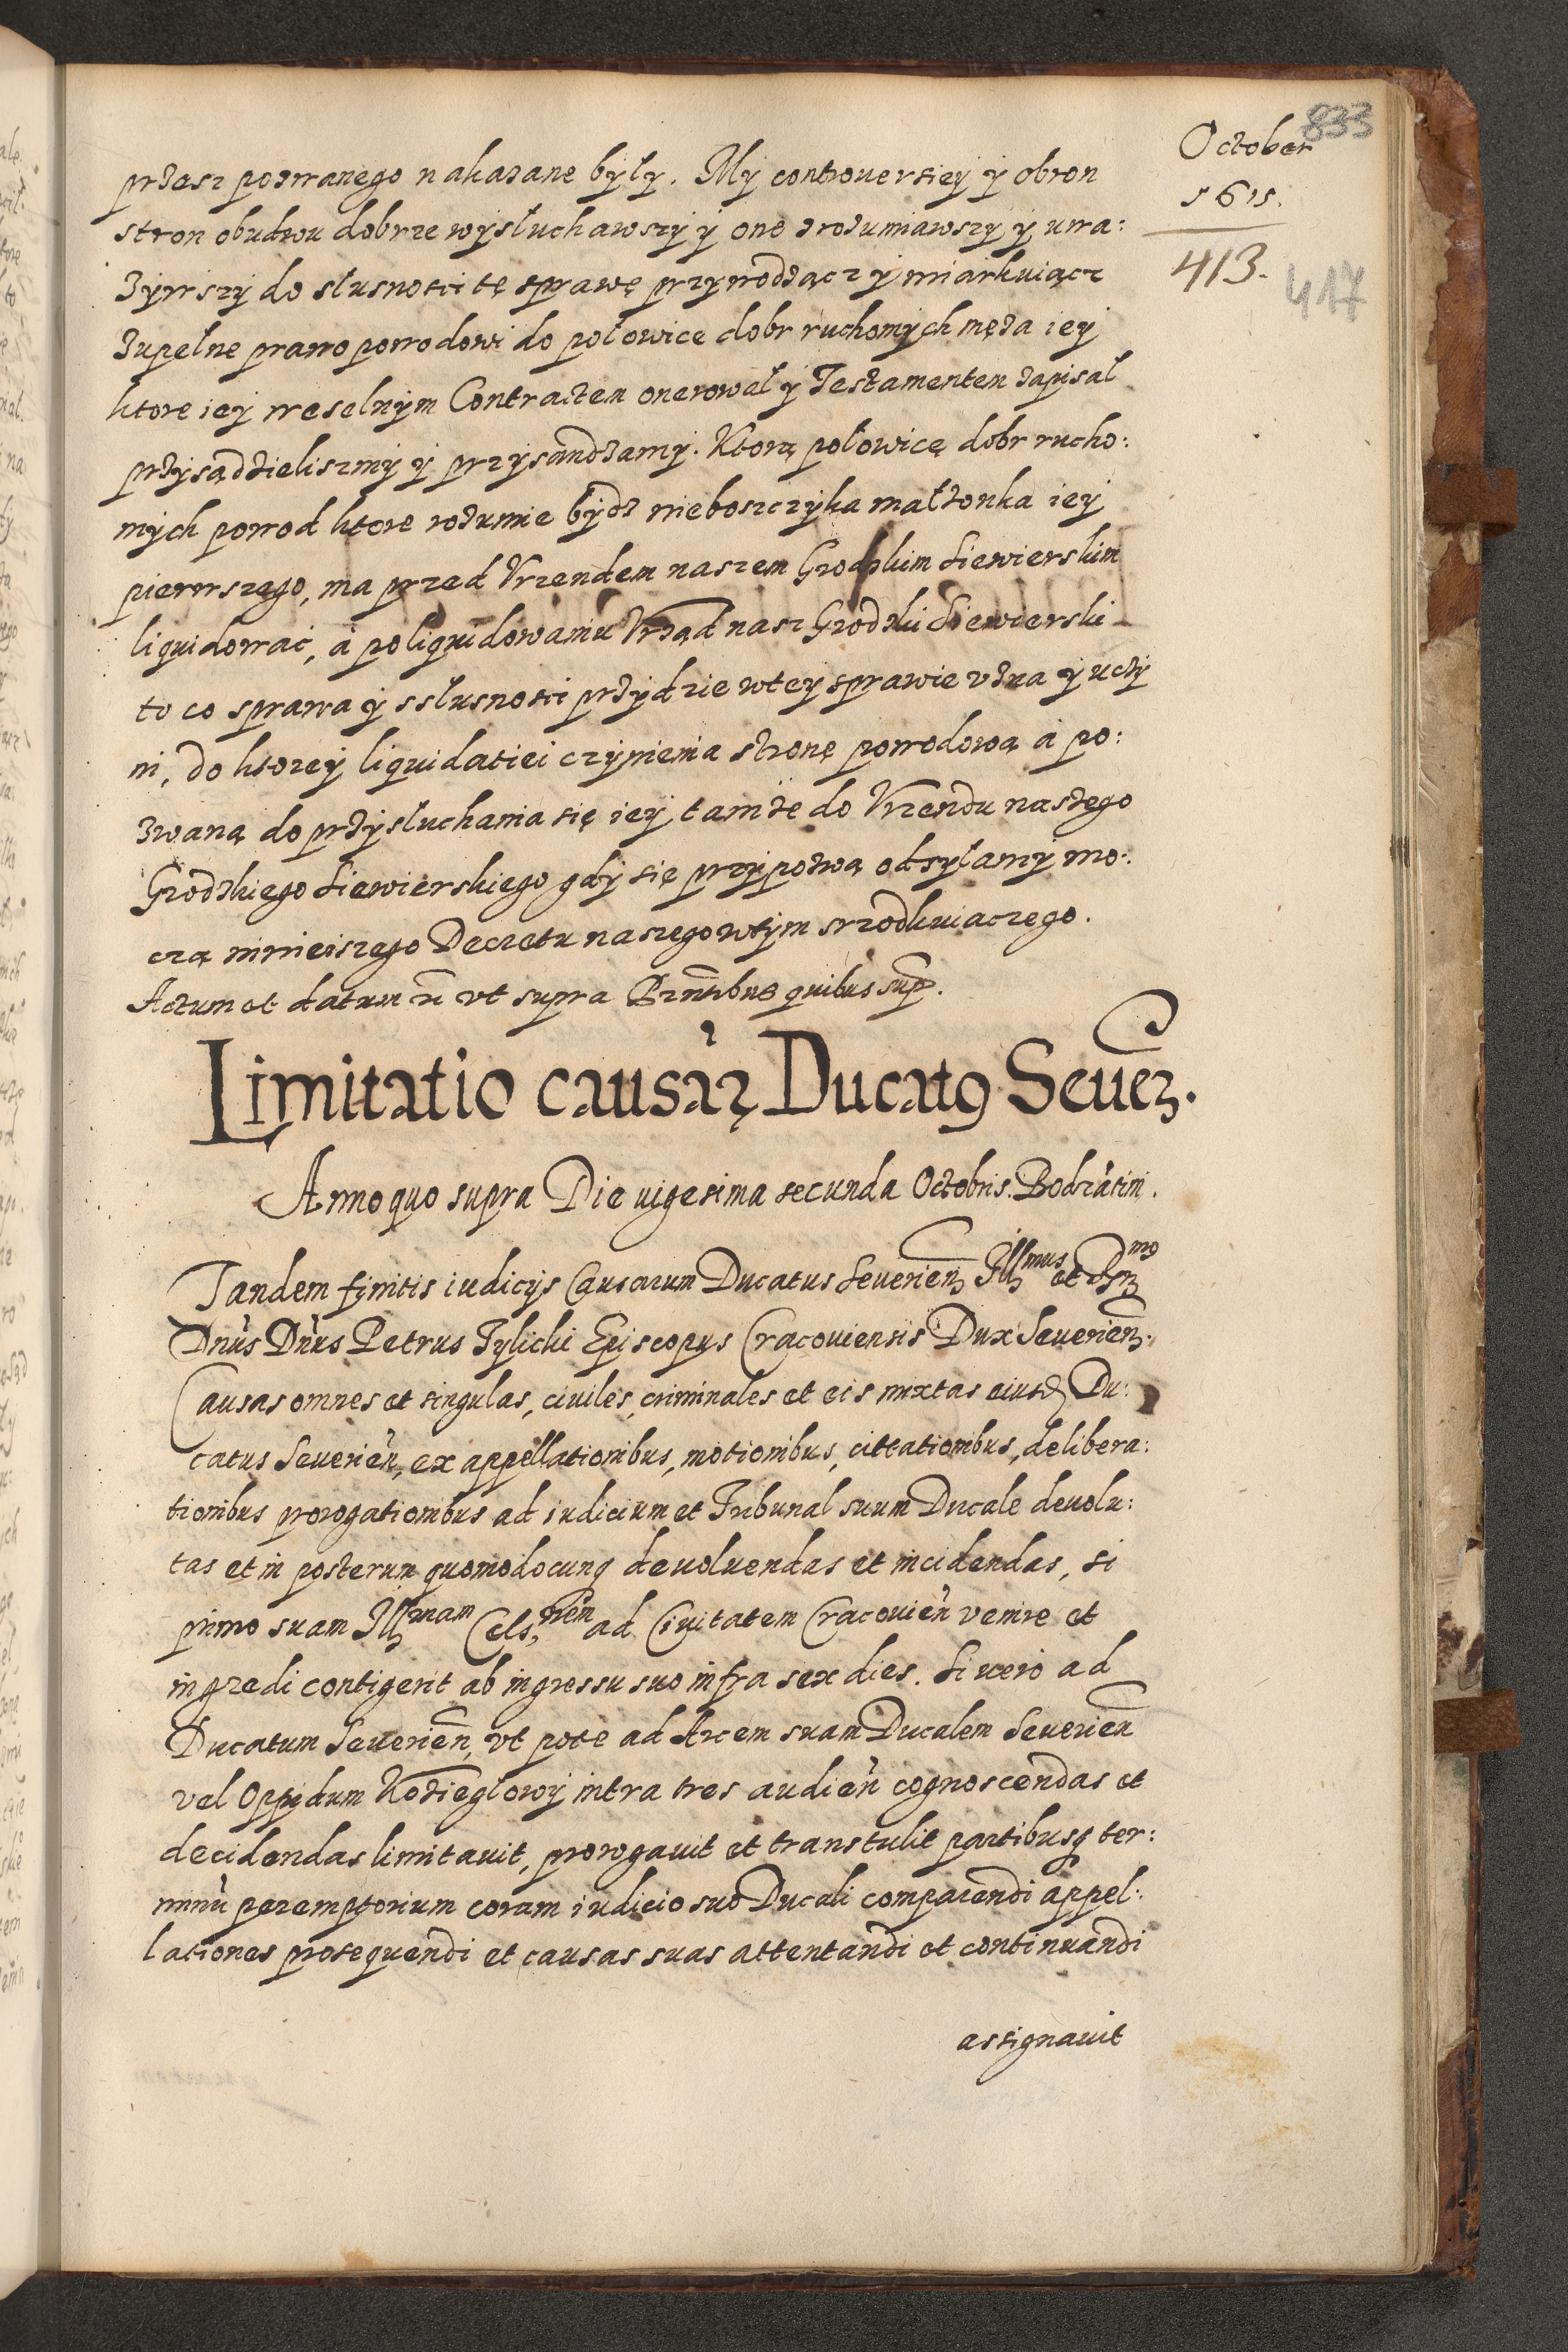 October
1615.
833
413.
417
przesz pozwanego nakazane były. My controuersiey y obron
stron obudwu dobrze wysłuchawszy y one zrozumiawszy y uwa:
żywszy do słusnosci tę sprawę przywodzącz y miarkuiącz
zupełne prawo powodowi do połowice dobr ruchomych męża iey
ktore iey weselnym Contractem onerował y Testamentem zapisał
przysądzieliszmy y przysandzamy. Ktorą połowicę dobr rucho:
mych powod ktore rozumie bydz nieboszczyka małżonka iey
pierwszego, ma przed Vrzendem naszem Grodzkim Siewierskim
liquidowac, a po liquidowaniu Vrząd nasz Grodzki Siewierski
to co sprawa y z słusnosci przydzie w tey sprawie vzna y uczy
ni, do ktorey liquidatiei czynienia stronę powodową a po:
zwaną do przysłuchania się iey tamże do Vrzendu naszego
Grodzkiego Siewierskiego gdy się przypozwą odsyłamy mo:
czą ninieiszego Decretu naszego w tym srzodkuiaczego.
Actum et datum ut supra Pñtibus quibus sup.
Limitatio causar Ducatus Seueñ.
Anno quo supra Die uigesima secunda Octobris. Bodzatin.
Tandem finitis iudicijs Causarum Ducatus Seuerieñ Illmus et Rmo
Dnus Dnus Petrus Tylicki Episcopus Cracouiensis Dux Seuerieñ.
Causas omnes et singulas, ciuiles, criminales et eis mixtas eiusd Du:
catus Seuerieñ, ex appellationibus, motionibus, cittationibus, delibera:
tionibus prorogationibus ad iudicium et Tribunal suum Ducale deuolu:
tas et in posterum quomodocunq deuoluendas et incidendas, si
primo suam Illmam Cels,nem ad Ciuitatem Cracouieñ venire et
ingredi contigerit ab ingressu suo infra sex dies. Si uero ad
Ducatum Seuerieñ, vt pote ad Arcem suam Ducalem Seuerieñ
vel Oppidum Kozieglowy intra tres audieñ cognoscendas et
decidendas limitauit, prorogauit et transtulit partibusq ter:
minũ peremptorium coram iudicio suo Ducali comparendi appel:
lationes prosequendi et causas suas attentandi et continuandi
assignauit